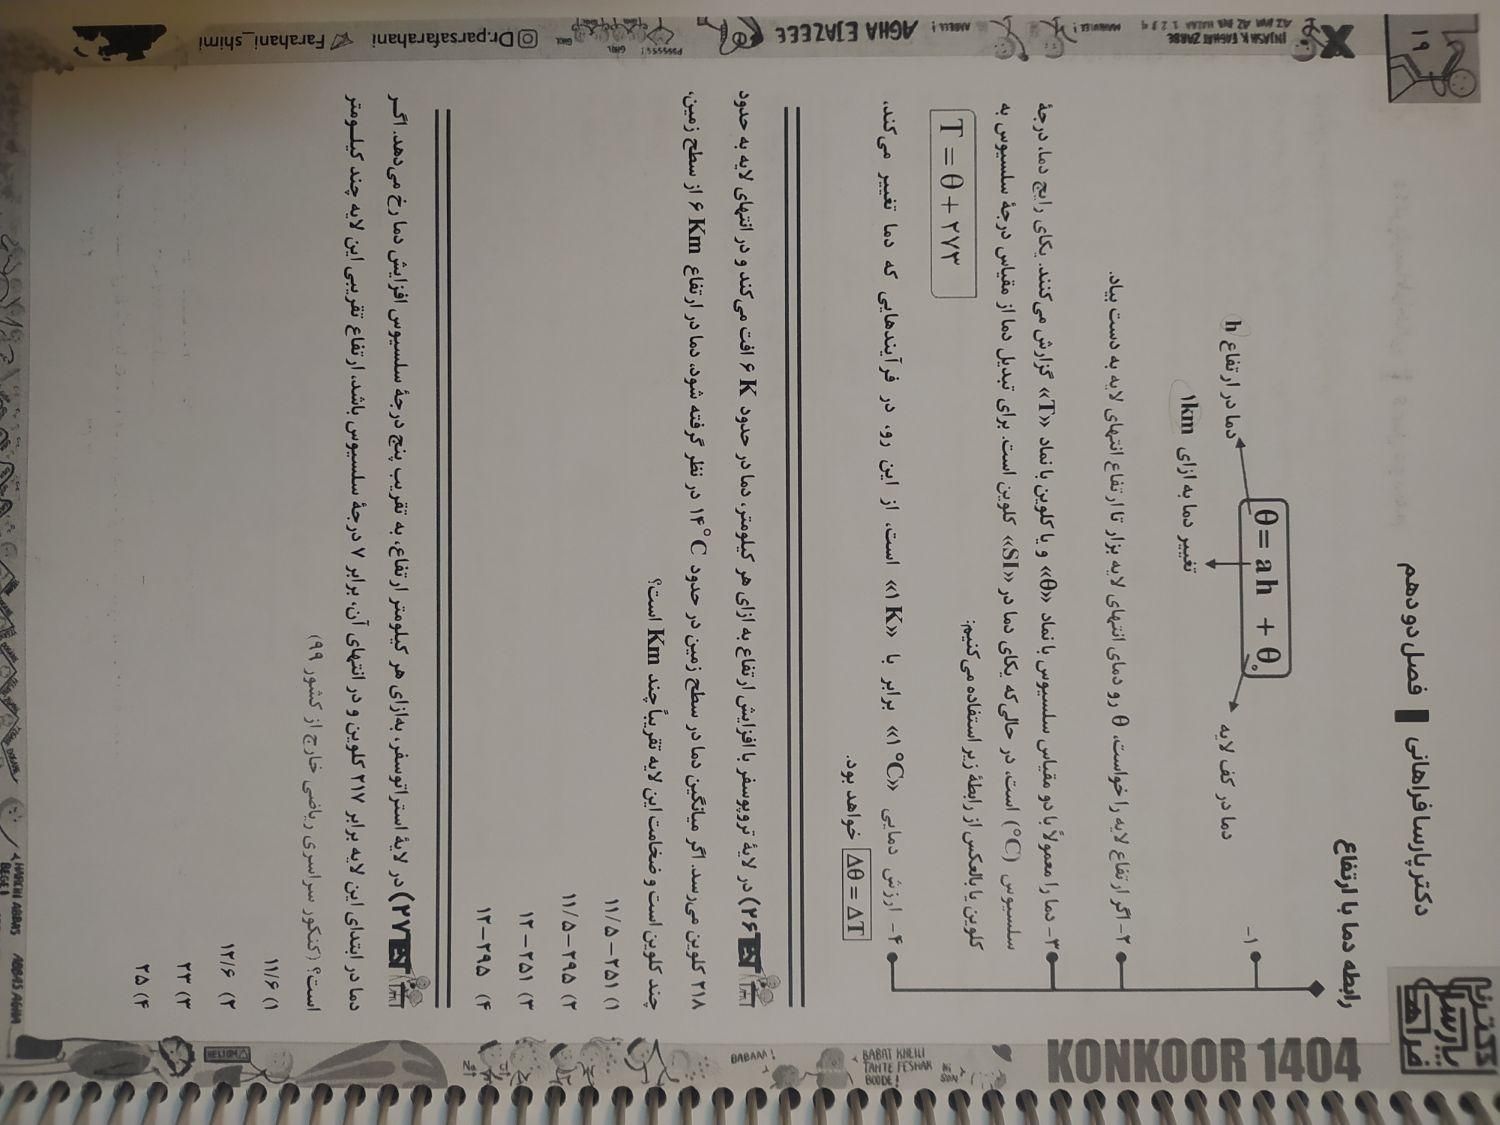 ۱۹
دکتر پارسا فراهانی
فصل دو دهم
رابطه دما با ارتفاع
۱-
θ = a h + θ۰
دما در ارتفاع h
تغییر دما به ازای ۱km
دما در کف لایه
۲- اگر ارتفاع لایه را خواست، θ رو دمای انتهای لایه بزار تا ارتفاع انتهای لایه به دست بیاد.
۳- دما را معمولاً با دو مقیاس سلسیوس با نماد «θ» و یا کلوین با نماد «T» گزارش می‌کنند. یکای رایج دما، درجهٔ
سلسیوس (°C) است، در حالی‌که یکای دما در «SI» کلوین است. برای تبدیل دما از مقیاس درجهٔ سلسیوس به
کلوین یا بالعکس از رابطهٔ زیر استفاده می‌کنیم:
T = θ + ۲۷۳
۴- ارزش دمایی «۱°C» برابر با «۱K» است، از این رو، در فرآیندهایی که دما تغییر می‌کند،
Δθ = ΔT خواهد بود.
۲۶) در لایهٔ تروپوسفر با افزایش ارتفاع به ازای هر کیلومتر، دما در حدود ۶ K افت می‌کند و در انتهای لایه به حدود
۲۱۸ کلوین می‌رسد. اگر میانگین دما در سطح زمین در حدود ۱۴°C در نظر گرفته شود، دما در ارتفاع ۶ Km از سطح زمین،
چند کلوین است و ضخامت این لایه تقریباً چند Km است؟
۱) ۲۵۱ – ۱۱/۵
۲) ۲۹۵ – ۱۱/۵
۳) ۲۵۱ – ۱۲
۴) ۲۹۵ – ۱۲
۲۷) در لایهٔ استراتوسفر، به‌ازای هر کیلومتر ارتفاع، به تقریب پنج درجهٔ سلسیوس افزایش دما رخ می‌دهد. اگر
دما در ابتدای این لایه برابر ۲۱۷ کلوین و در انتهای آن، برابر ۷ درجهٔ سلسیوس باشد، ارتفاع تقریبی این لایه چند کیلومتر
است؟ (کنکور سراسری ریاضی خارج از کشور ۹۹)
۱) ۱۱/۶
۲) ۱۲/۶
۳) ۲۳
۴) ۲۵
KONKOOR 1404
BABAT KHEILI
TAHTE FESHAR
BOODE!
BABAAA!
HELIUM
AGHA EJAZEEE
Dr.parsafarahani
Farahani_shimi